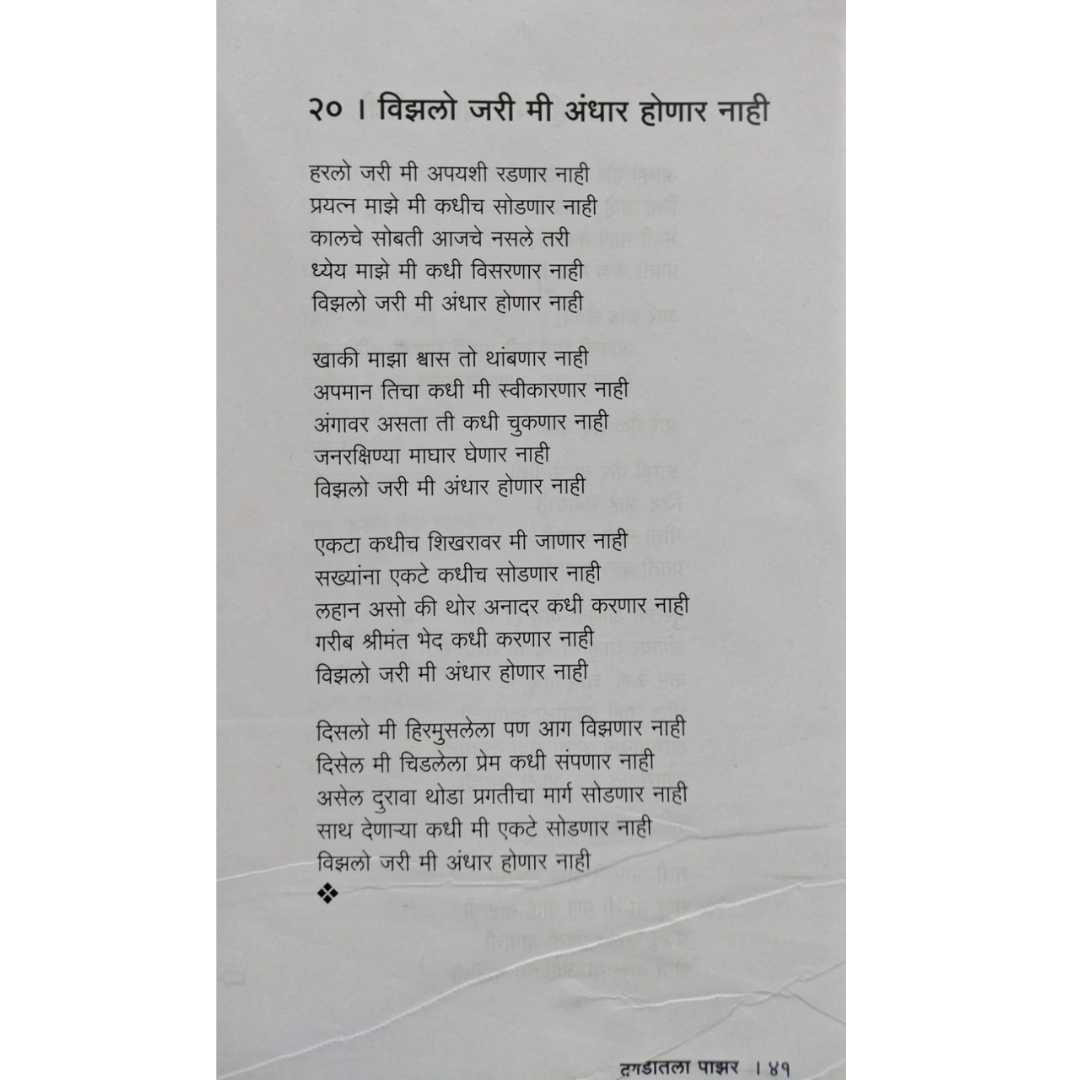 २० । विझलो जरी मी अंधार होणार नाही
हरलो जरी मी अपयशी रडणार नाही
प्रयत्न माझे मी कधीच सोडणार नाही
कालचे सोबती आजचे नसले तरी
ध्येय माझे मी कधी विसरणार नाही
विझलो जरी मी अंधार होणार नाही
खाकी माझा श्वास तो थांबणार नाही
अपमान तिचा कधी मी स्वीकारणार नाही
अंगावर असता ती कधी चुकणार नाही
जनरक्षिण्या माघार घेणार नाही
विझलो जरी मी अंधार होणार नाही
एकटा कधीच शिखरावर मी जाणार नाही
सख्यांना एकटे कधीच सोडणार नाही
लहान असो की थोर अनादर कधी करणार नाही
गरीब श्रीमंत भेद कधी करणार नाही
विझलो जरी मी अंधार होणार नाही
दिसलो मी हिरमुसलेला पण आग विझणार नाही
दिसेल मी चिडलेला प्रेम कधी संपणार नाही
असेल दुरावा थोडा प्रगतीचा मार्ग सोडणार नाही
साथ देणाऱ्या कधी मी एकटे सोडणार नाही
विझलो जरी मी अंधार होणार नाही
दगडातला पाझर । ४१